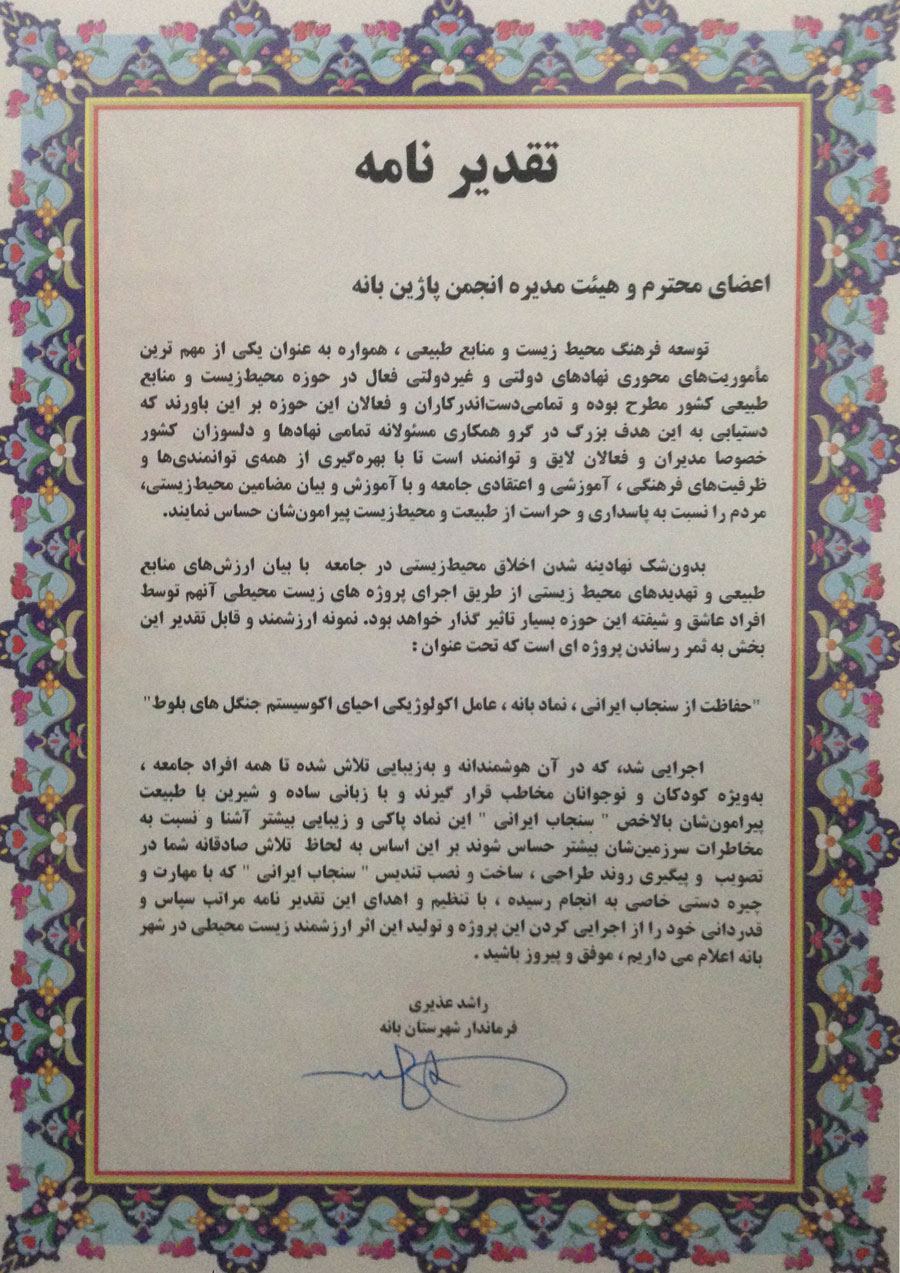 تقدیر نامه
اعضای محترم و هیئت مدیره انجمن پاژین بانه
توسعه فرهنگ محیط زیست و منابع طبیعی ، همواره به عنوان یکی از مهم ترین
مأموریت‌های محوری نهادهای دولتی و غیردولتی فعال در حوزه محیط‌زیست و منابع
طبیعی کشور مطرح بوده و تمامی‌دست‌اندرکاران و فعالان این حوزه بر این باورند که
دستیابی به این هدف بزرگ در گرو همکاری مسئولانه تمامی نهادها و دلسوزان کشور
خصوصا مدیران و فعالان لایق و توانمند است تا با بهره‌گیری از همه‌ی توانمندی‌ها و
ظرفیت‌های فرهنگی ، آموزشی و اعتقادی جامعه و با آموزش و بیان مضامین محیط‌زیستی،
مردم را نسبت به پاسداری و حراست از طبیعت و محیط‌زیست پیرامون‌شان حساس نمایند.
بدون‌شک نهادینه شدن اخلاق محیط‌زیستی در جامعه با بیان ارزش‌های منابع
طبیعی و تهدیدهای محیط زیستی از طریق اجرای پروژه های زیست محیطی آنهم توسط
افراد عاشق و شیفته این حوزه بسیار تاثیر گذار خواهد بود. نمونه ارزشمند و قابل تقدیر این
بخش به ثمر رساندن پروژه ای است که تحت عنوان :
"حفاظت از سنجاب ایرانی ، نماد بانه ، عامل اکولوژیکی احیای اکوسیستم جنگل های بلوط"
اجرایی شد، که در آن هوشمندانه و به‌زیبایی تلاش شده تا همه افراد جامعه ،
به‌ویژه کودکان و نوجوانان مخاطب قرار گیرند و با زبانی ساده و شیرین با طبیعت
پیرامون‌شان بالاخص " سنجاب ایرانی " این نماد پاکی و زیبایی بیشتر آشنا و نسبت به
مخاطرات سرزمین‌شان بیشتر حساس شوند بر این اساس به لحاظ تلاش صادقانه شما در
تصویب و پیگیری روند طراحی ، ساخت و نصب تندیس " سنجاب ایرانی " که با مهارت و
چیره دستی خاصی به انجام رسیده ، با تنظیم و اهدای این تقدیر نامه مراتب سپاس و
قدردانی خود را از اجرایی کردن این پروژه و تولید این اثر ارزشمند زیست محیطی در شهر
بانه اعلام می داریم ، موفق و پیروز باشید .
راشد عذیری
فرماندار شهرستان بانه